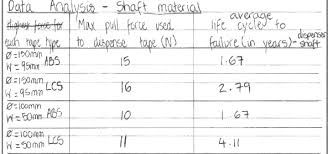 Data Analysis - Shaft material
Highest force for
each tape type
Max pull force used
to dispense tape (N)
average
life cycle to
failure (in years) - dispenser
shaft
Ø=150mm
W=95mm ABS
15
1.67
Ø=150mm
W=95mm LCS
16
2.79
Ø=100mm
W=50mm ABS
10
1.67
Ø=100mm
W=50mm LCS
11
4.11